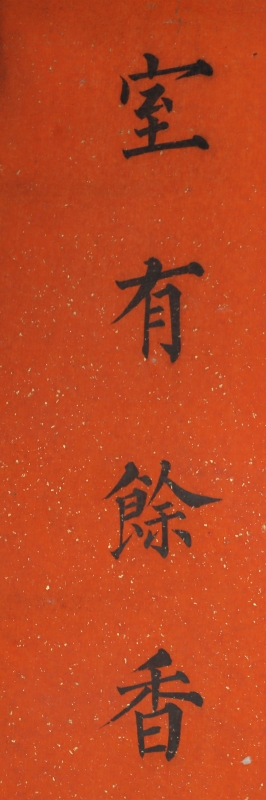 室有餘香